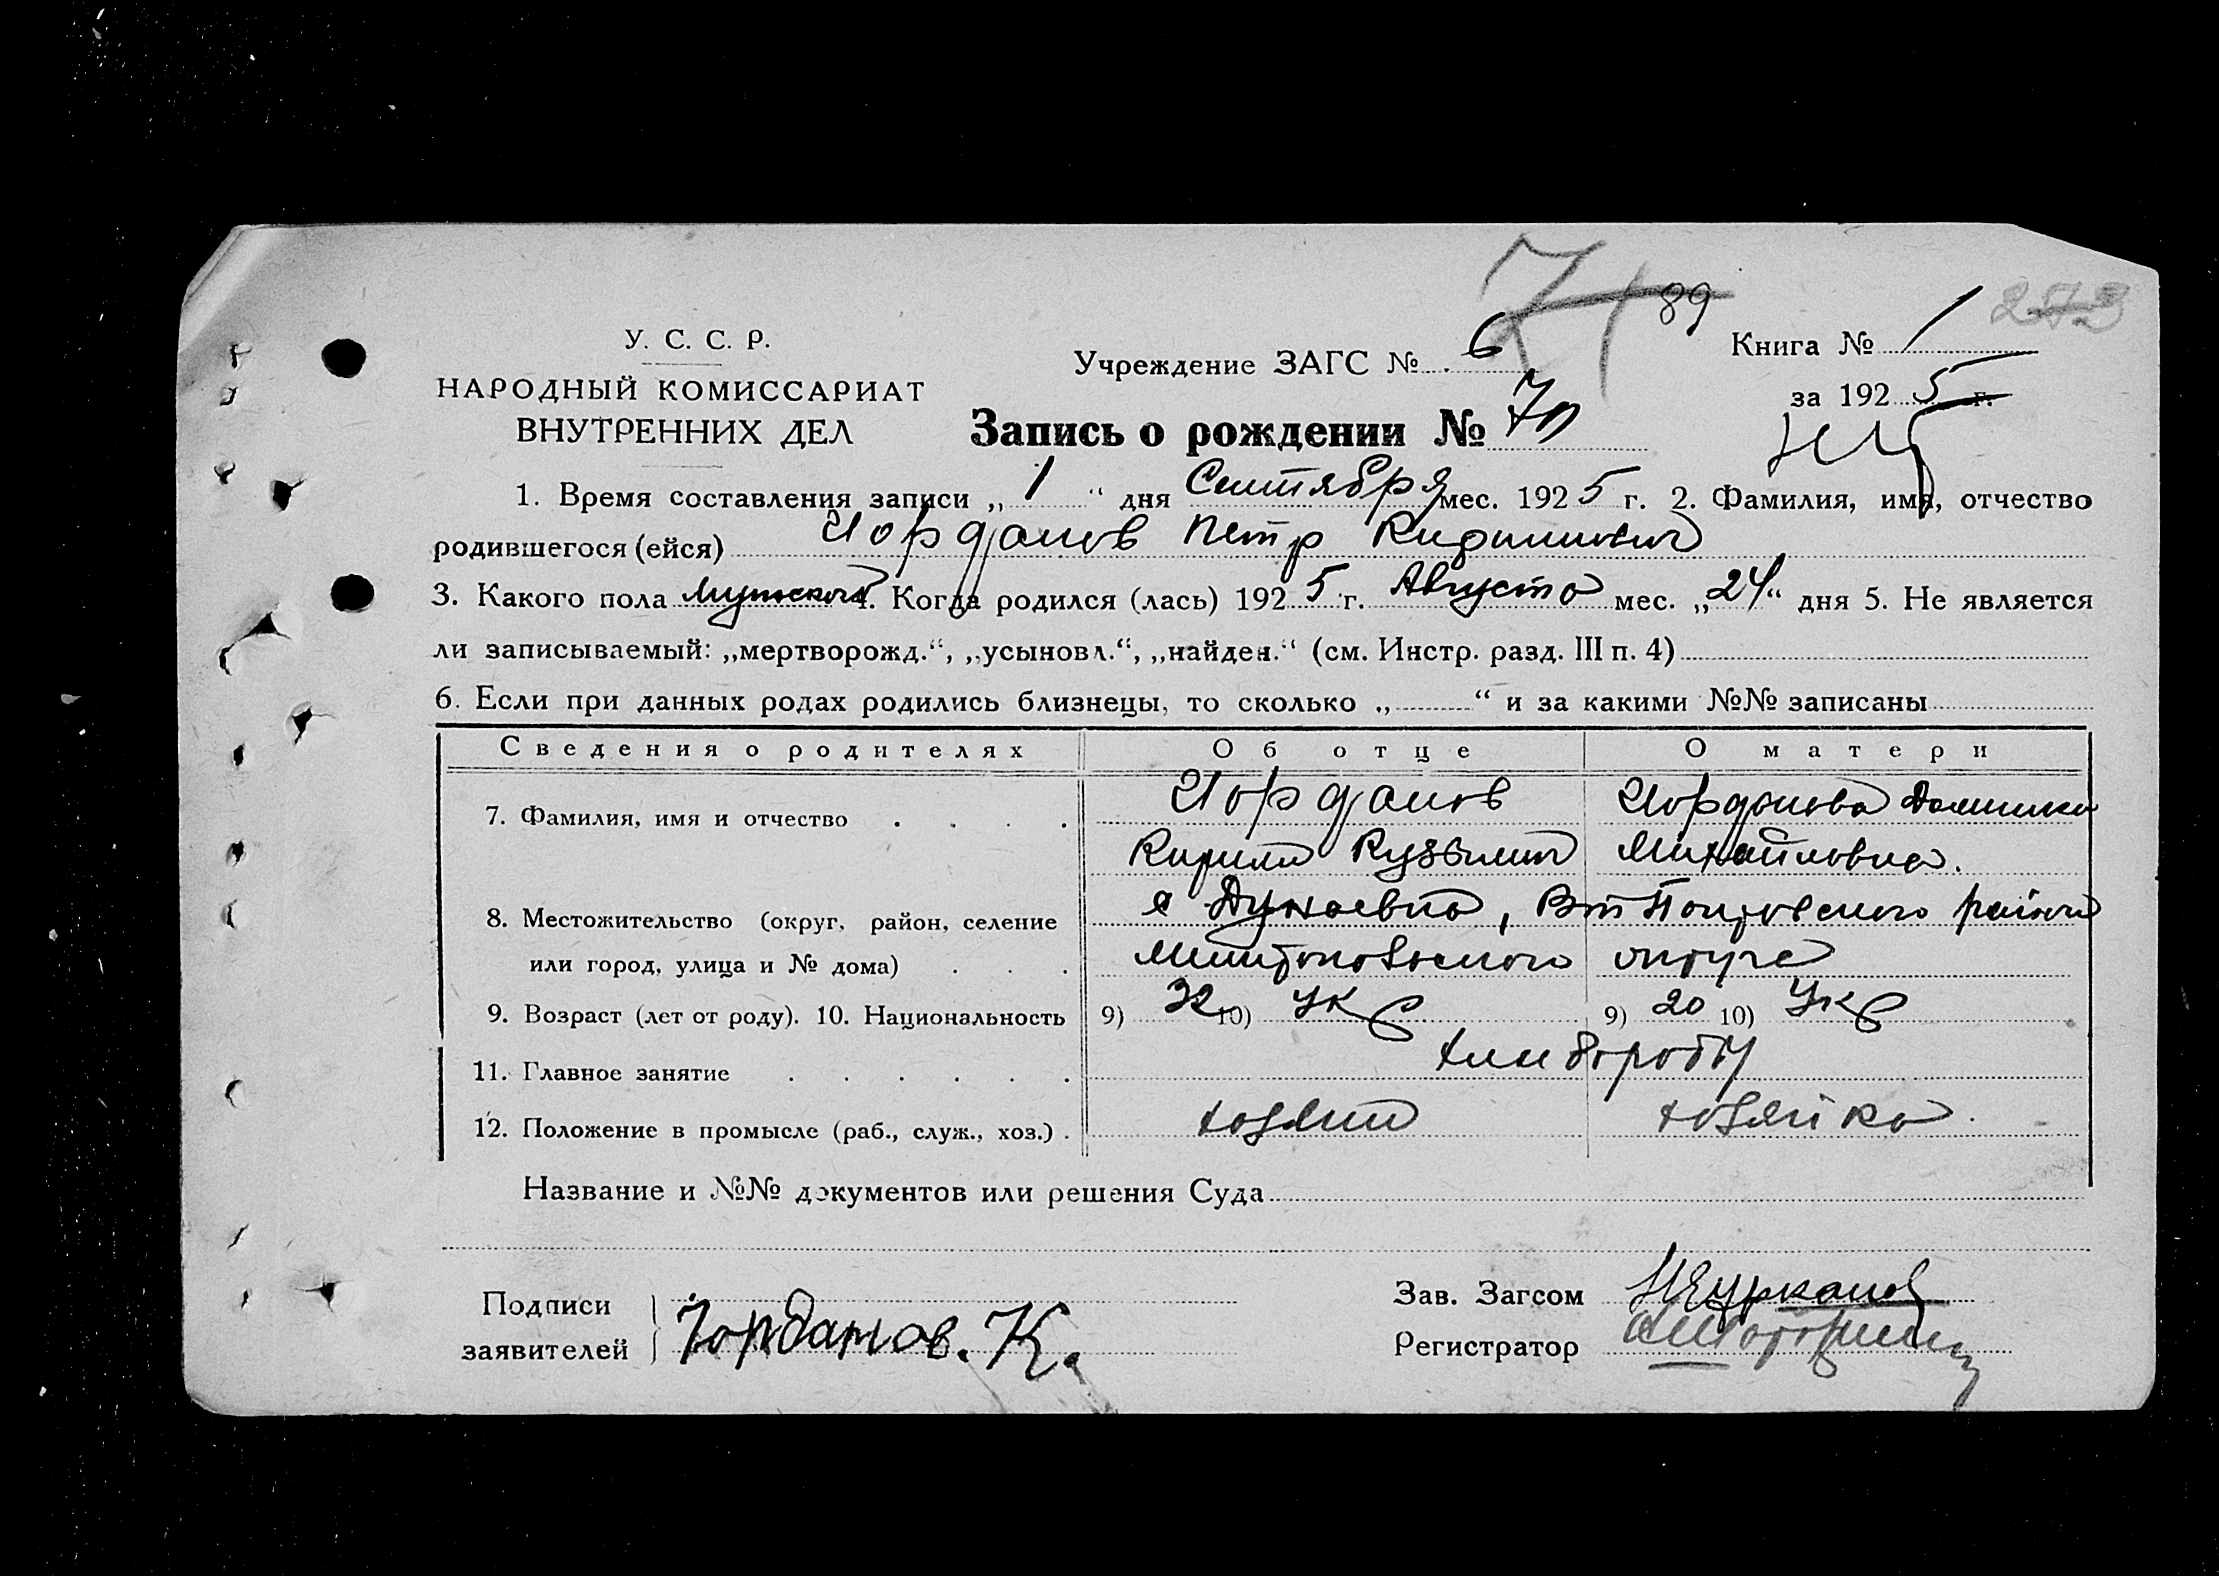 71 89 273
У. С. С. Р.
НАРОДНЫЙ КОМИССАРИАТ
ВНУТРЕННИХ ДЕЛ
Учреждение ЗАГС № 6
Книга № 1
за 1925 г.
Запись о рождении №
1. Время составления записи „1“ дня Сентября мес. 1925 г. 2. Фамилия, имя, отчество
родившегося (ейся) Иорданов Петр Кириллович
3. Какого пола Мужской 4. Когда родился (лась) 1925 г. Августа мес. „24“ дня 5. Не является
ли записываемый: „мертворожд.“, „усыновл.“, „найден.“ (см. Инстр. разд. III п. 4)
6. Если при данных родах родились близнецы, то сколько „ “ и за какими №№ записаны
Сведения о родителях Об отце О матери
7. Фамилия, имя и отчество Иорданов Иорданова Домника
Кирилл Кузьмич Михайловна.
8. Местожительство (округ, район, селение с Дунаевка, района
или город, улица и № дома) округа
9. Возраст (лет от роду). 10. Национальность 9) 32 10) Укр 9) 20 10) Укр
11. Главное занятие
12. Положение в промысле (раб., служ., хоз.) хозяин хозяйка.
Название и №№ документов или решения Суда
Подписи
заявителей Іорданов. К.
Зав. Загсом
Регистратор